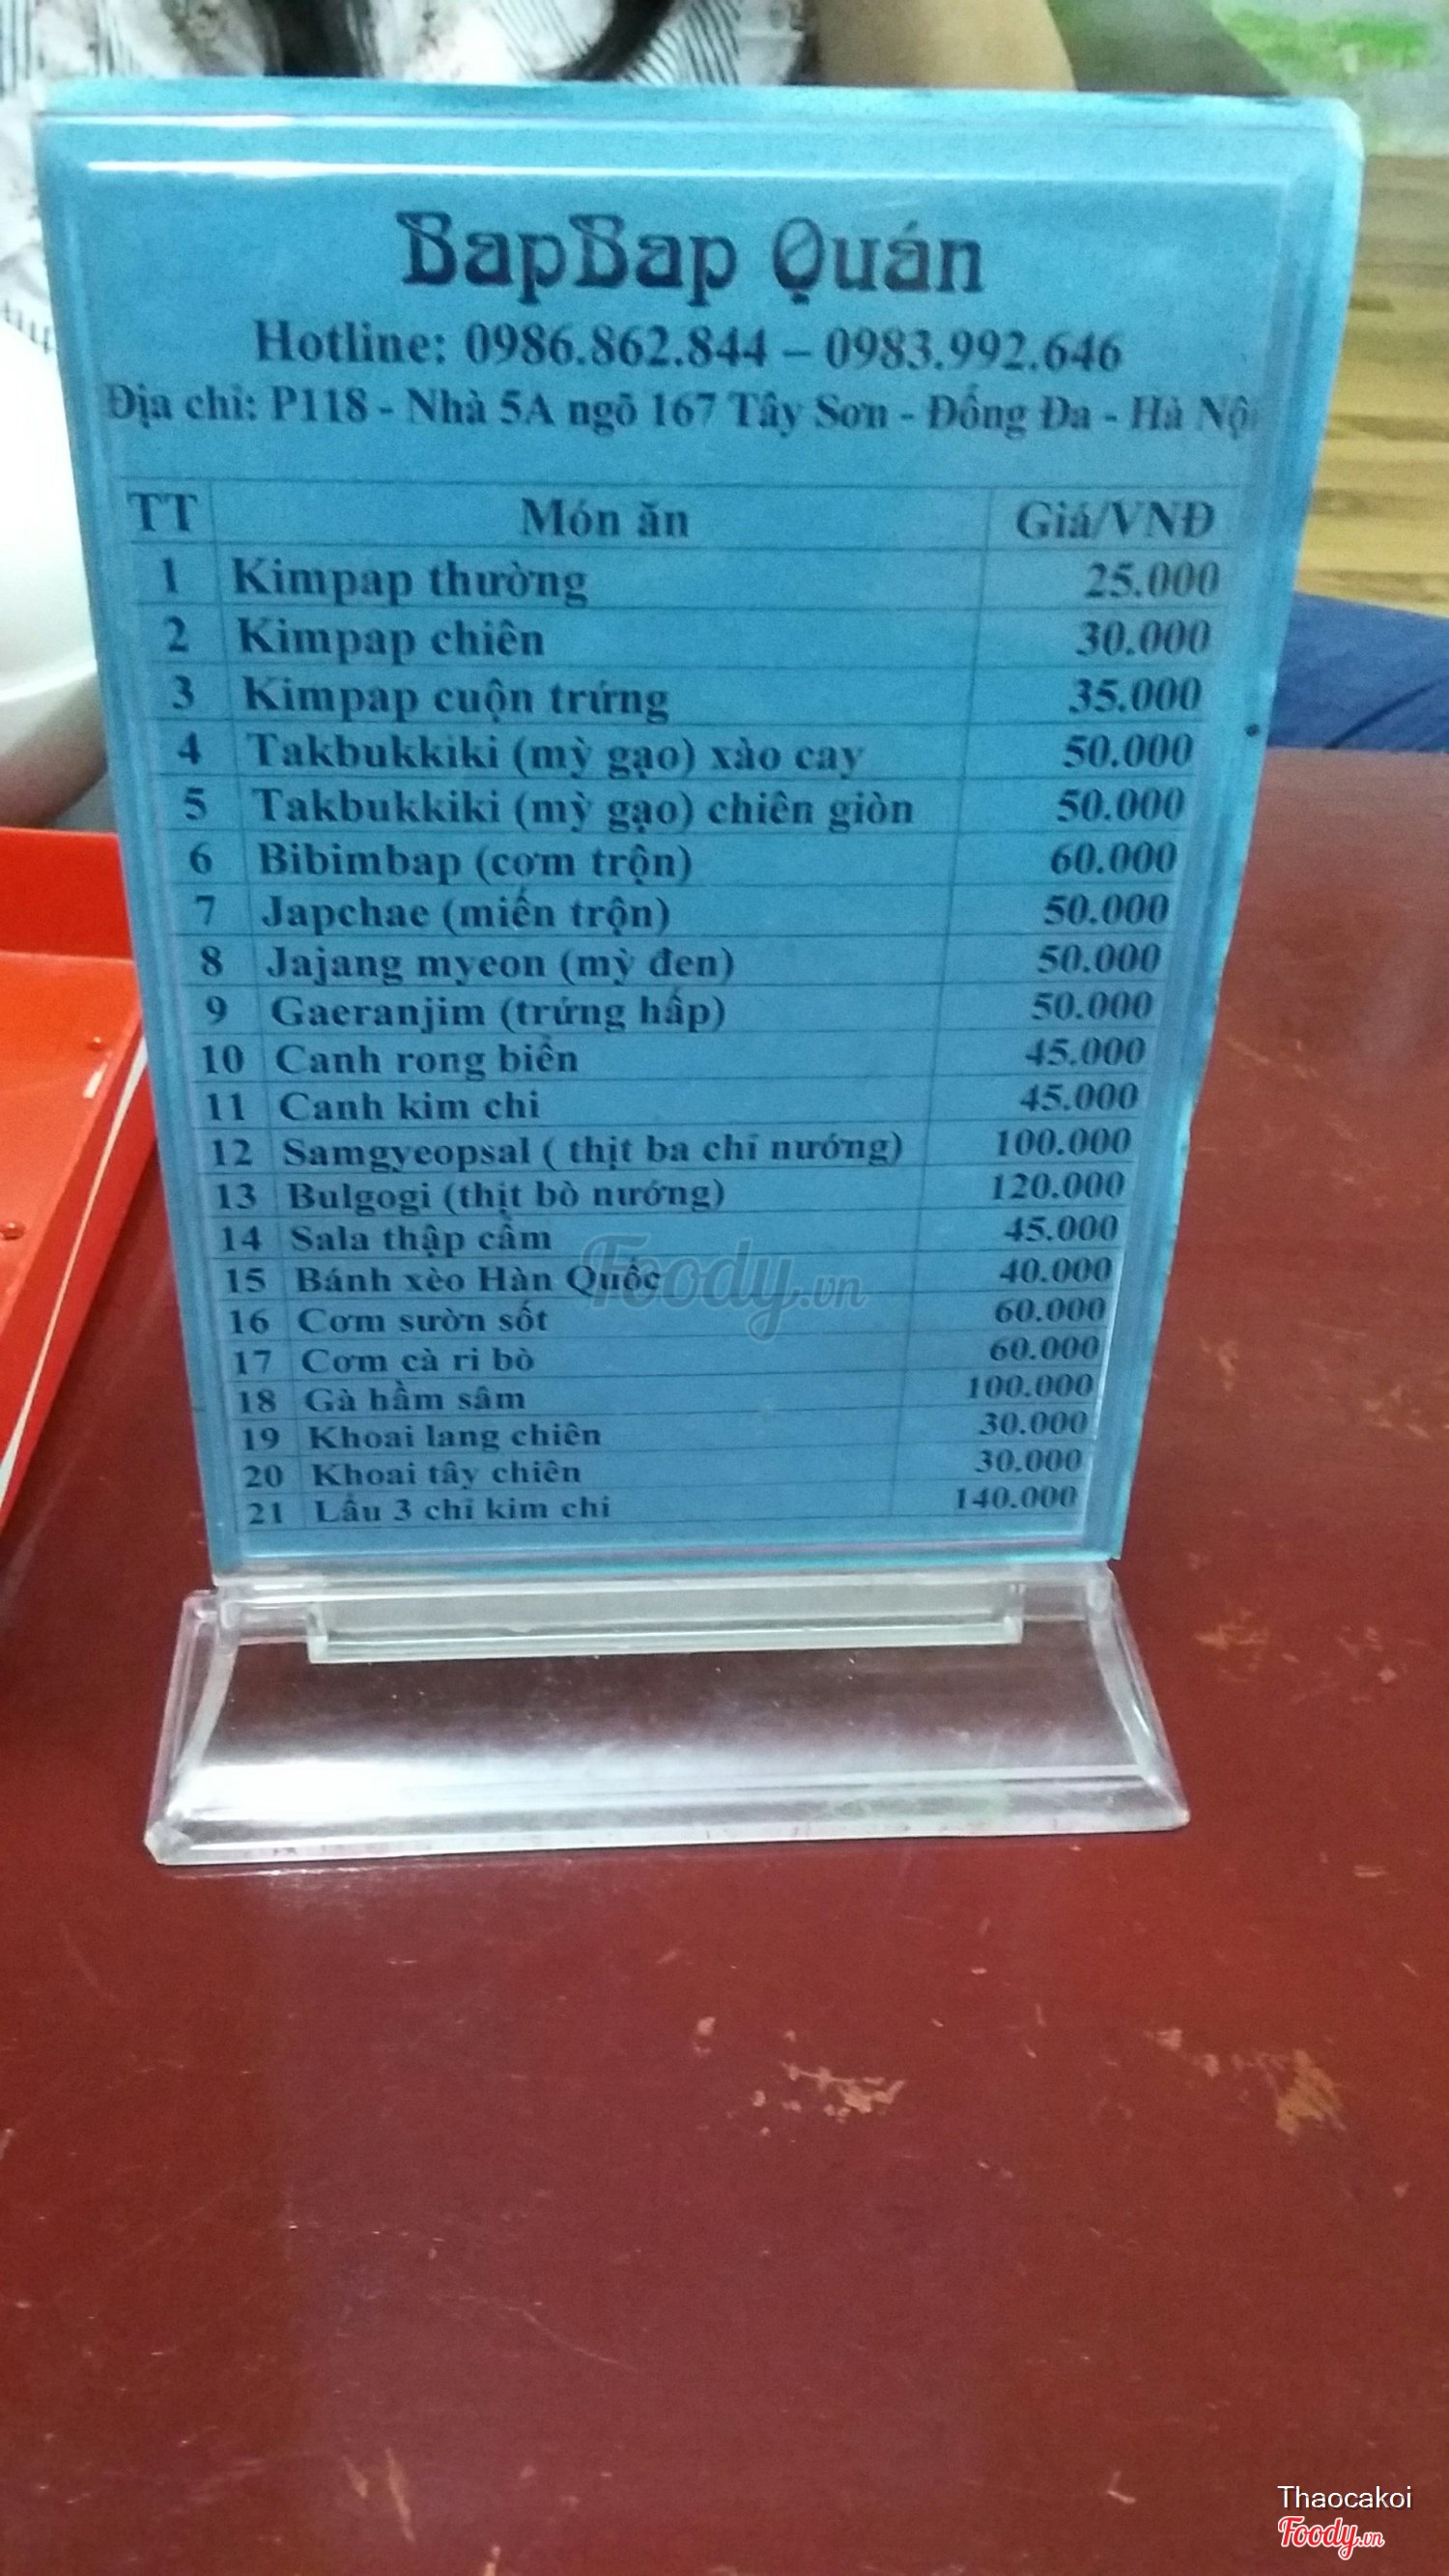 BapBap Quán
Hotline: 0986.862.844 – 0983.992.646
Địa chỉ: P118 - Nhà 5A ngõ 167 Tây Sơn - Đống Đa - Hà Nội
TT Món ăn Giá/VNĐ
1 Kimpap thường 25.000
2 Kimpap chiên 30.000
3 Kimpap cuộn trứng 35.000
4 Takbukkiki (mỳ gạo) xào cay 50.000
5 Takbukkiki (mỳ gạo) chiên giòn 50.000
6 Bibimbap (cơm trộn) 60.000
7 Japchae (miến trộn) 50.000
8 Jajang myeon (mỳ đen) 50.000
9 Gaeranjim (trứng hấp) 50.000
10 Canh rong biển 45.000
11 Canh kim chi 45.000
12 Samgyeopsal ( thịt ba chỉ nướng) 100.000
13 Bulgogi (thịt bò nướng) 120.000
14 Sala thập cẩm 45.000
15 Bánh xèo Hàn Quốc 40.000
16 Cơm sườn sốt 60.000
17 Cơm cà ri bò 60.000
18 Gà hầm sâm 100.000
19 Khoai lang chiên 30.000
20 Khoai tây chiên 30.000
21 Lẩu 3 chỉ kim chi 140.000
Foody.vn
Thaocakoi
Foody.vn